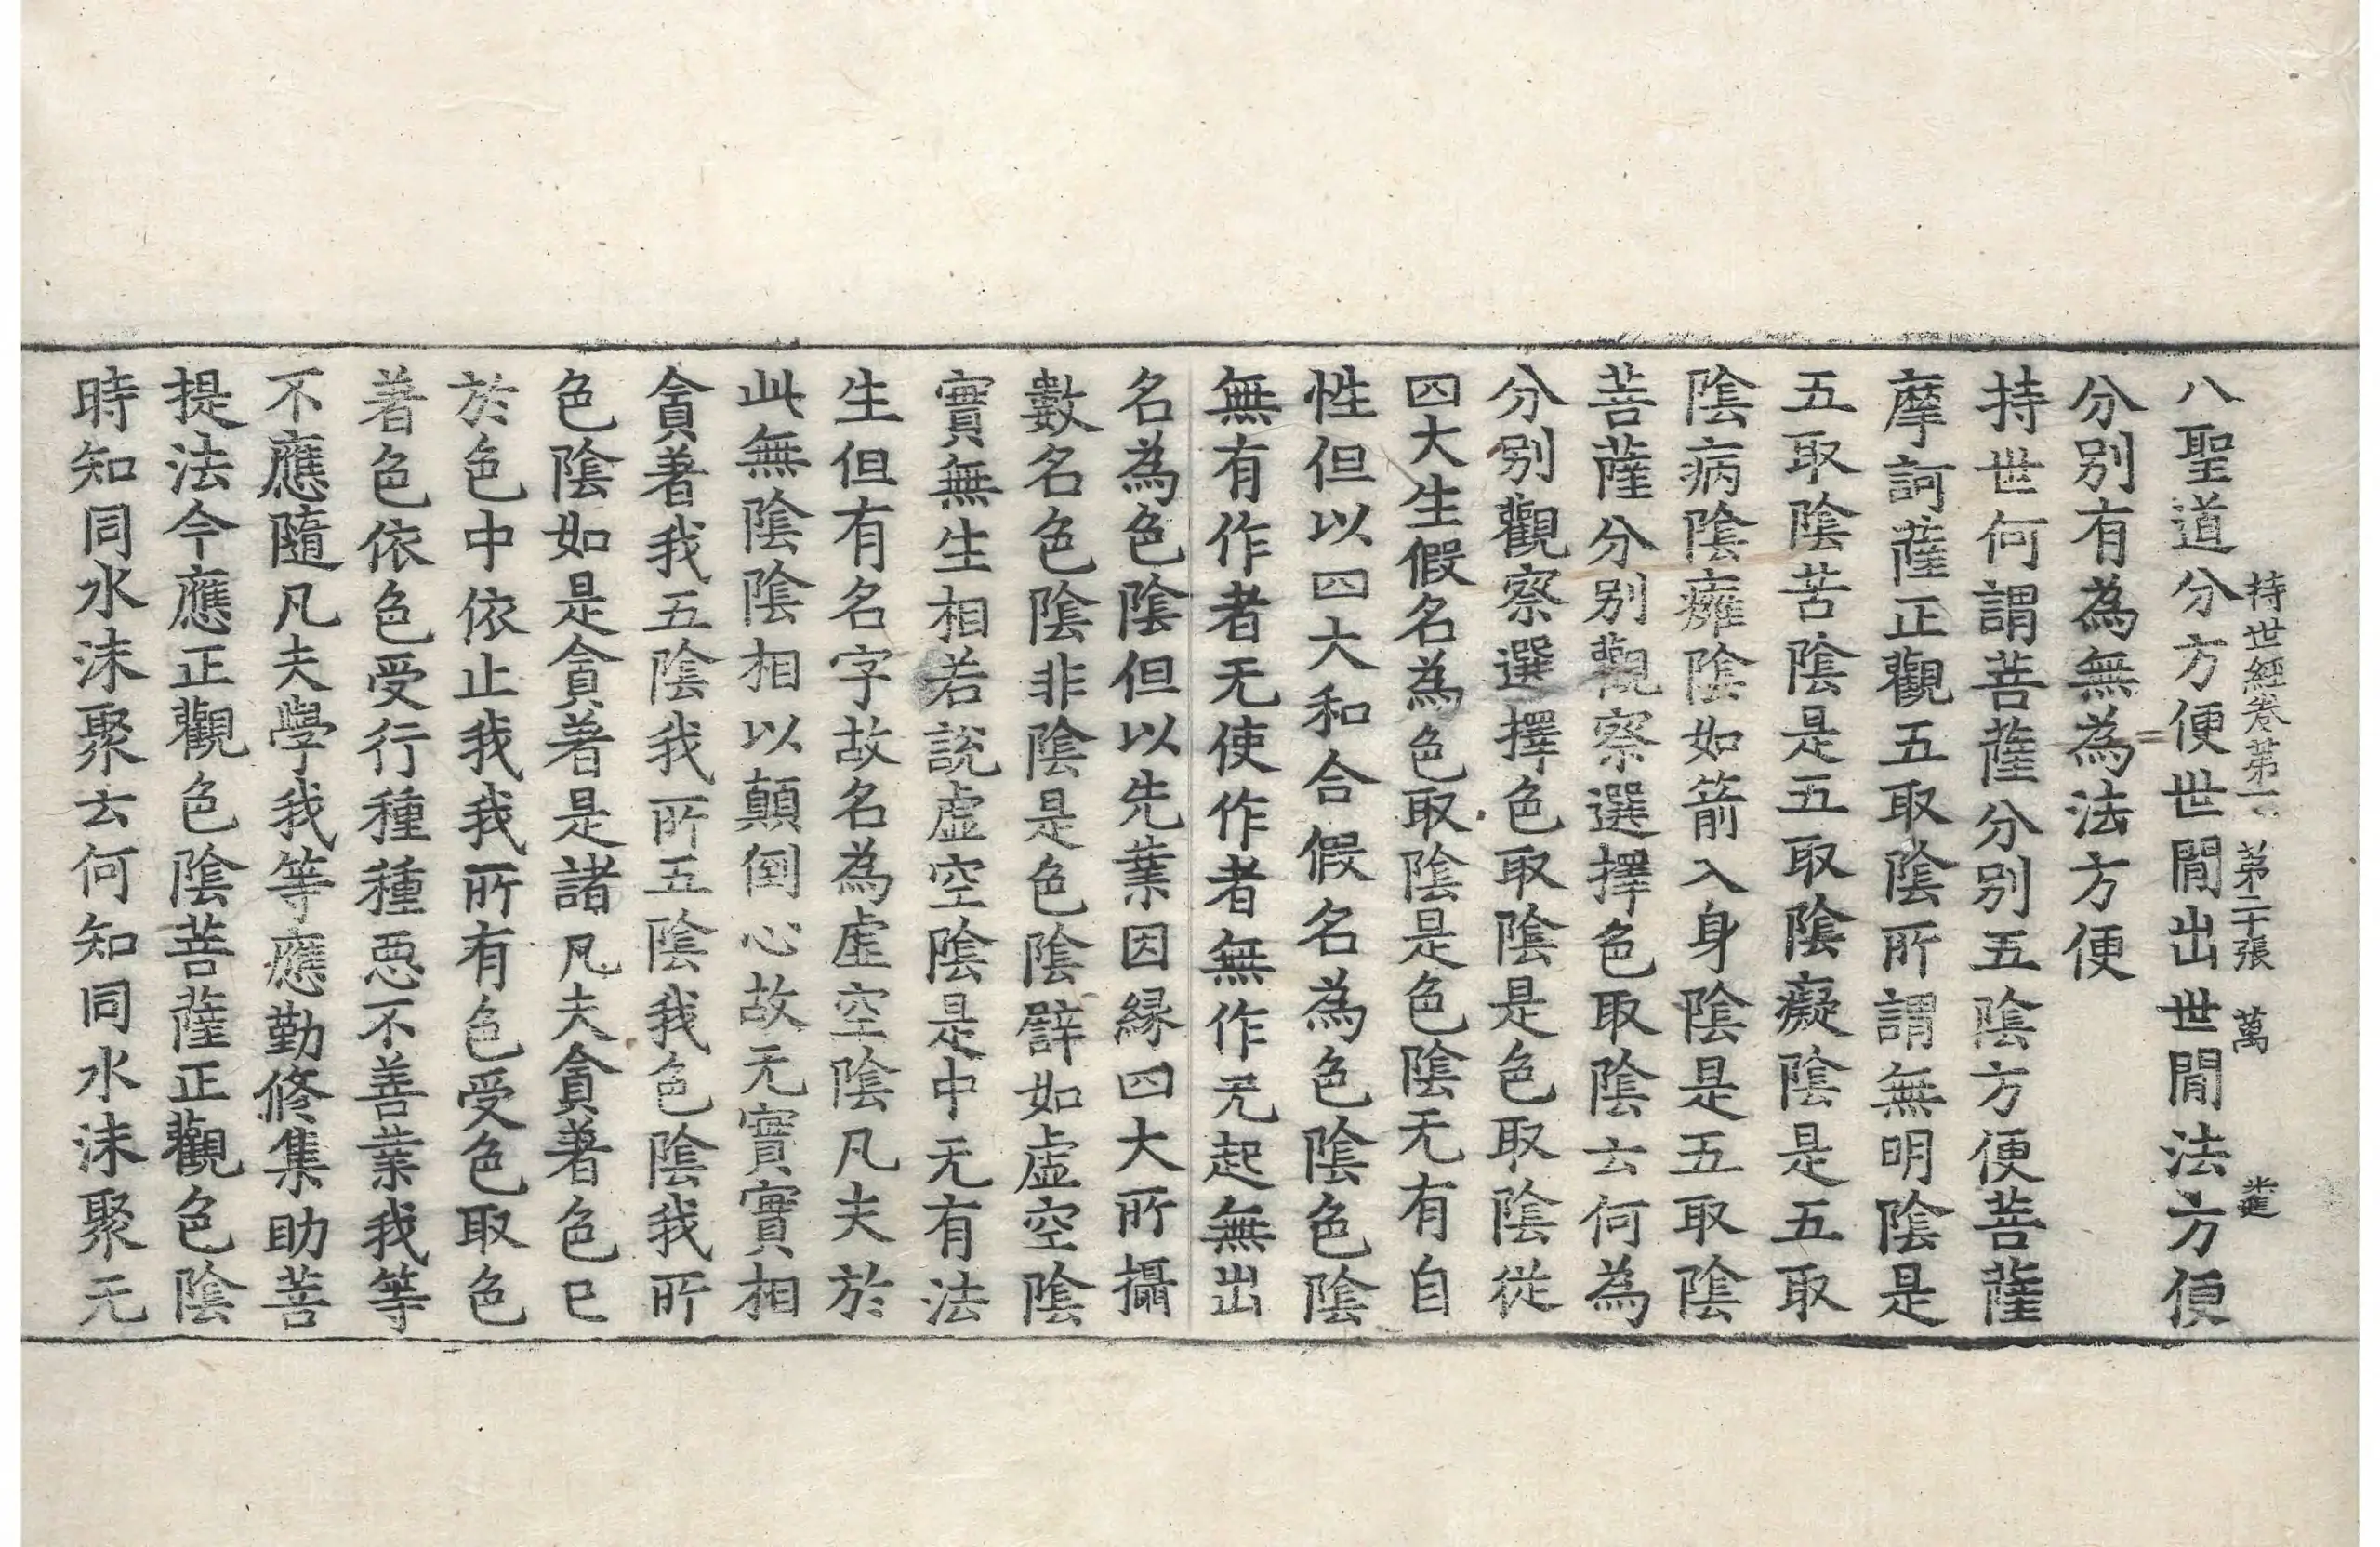 八聖道分方便世閒出世閒法方便
持世經卷第一 第二十張 萬
分別有為無為法方便
持世何謂菩薩分別五陰方便菩薩
摩訶薩正觀五取陰所謂無明陰是
五取陰苦陰是五取陰癡陰是五取
陰病陰癰陰如箭入身陰是五取陰
菩薩分別觀察選擇色取陰云何為
分別觀察選擇色取陰是色取陰從
四大生假名為色取陰是色陰无有自
性但以四大和合假名為色陰色陰
無有作者无使作者無作无起無出
名為色陰但以先業因緣四大所攝
數名色陰非陰是色陰譬如虛空陰
實無生相若說虛空陰是中无有法
生但有名字故名為虛空陰凡夫於
此無陰陰相以顛倒心故无實實相
貪著我五陰我所五陰我色陰我所
色陰如是貪著是諸凡夫貪著色已
於色中依止我我所有色受色取色
著色依色受行種種惡不善業我等
不應隨凡夫學我等應勤修集助菩
提法今應正觀色陰菩薩正觀色陰
時知同水沫聚云何知同水沫聚无